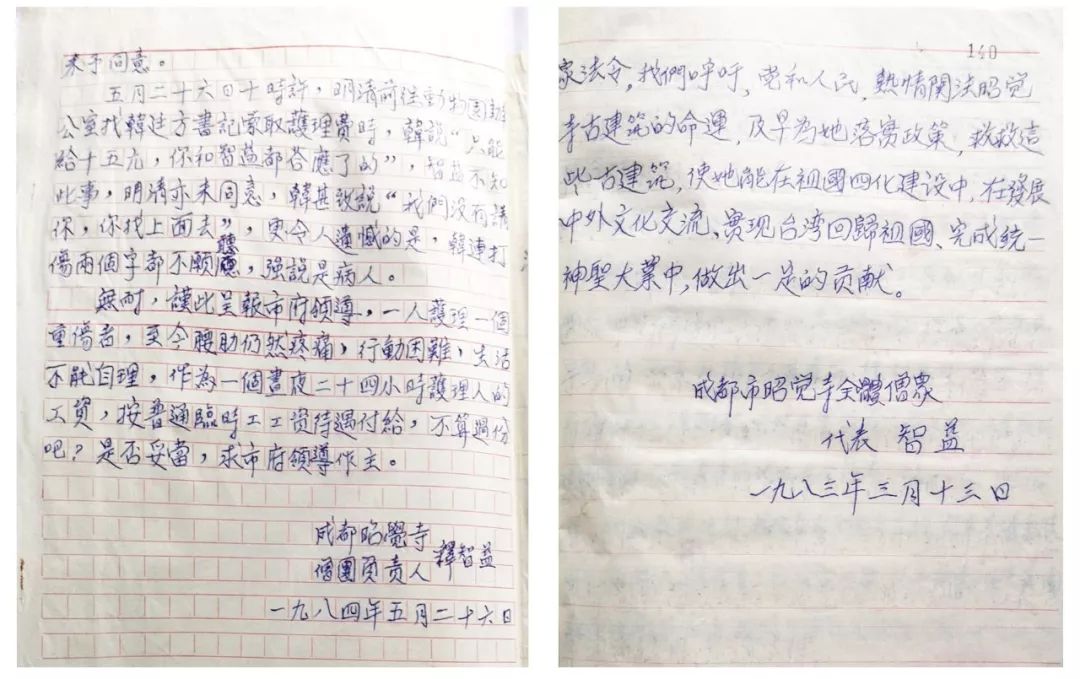 未予同意。
五月二十六日十時許，明清前往動物園辦
公室找韓廷方書記索取護理費時，韓說“只能
給十五元，你和智益都答應了的”，智益不知
此事，明清亦未同意，韓甚致說“我們沒有請
你，你找上面去”，更令人遺憾的是，韓連打
傷兩個字都不願聽，強說是病人。
無耐，謹此呈報市府領導，一人護理一個
重傷者，至今腰肋仍然疼痛，行動困難，生活
不能自理，作為一個晝夜二十四小時護理人的
工資，按普通臨時工工资待遇付給，不算過份
吧？是否妥當，求市府領導作主。
成都昭覺寺
僧團負责人 釋智益
一九八四年五月二十六日
140
家法令，我們呼吁，党和人民，熱情関法昭觉
寺古建筑的命運，及早為她落實政策，救救這
些古建筑，使她能在祖國四化建设中，在發展
中外文化交流、實现台湾回歸祖國、完成统一
神聖大業中，做出一定的贡献。
成都市昭觉寺全體僧眾
代表 智益
一九八三年三月十三日